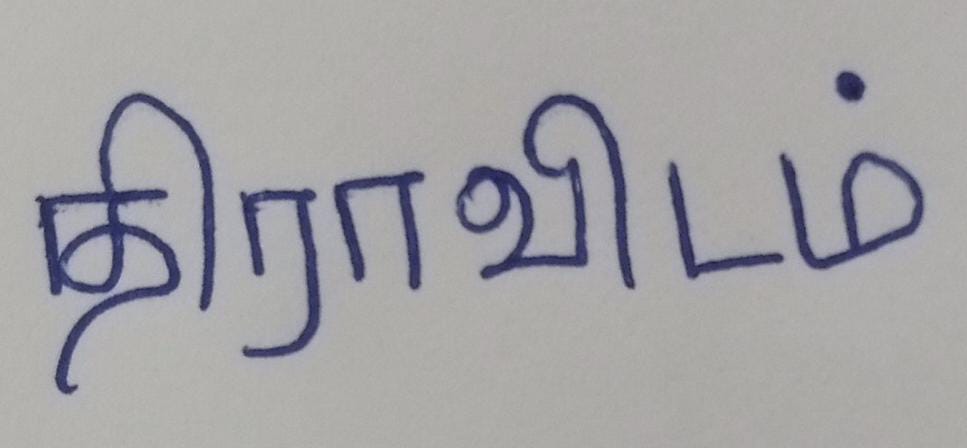 திராவிடம்